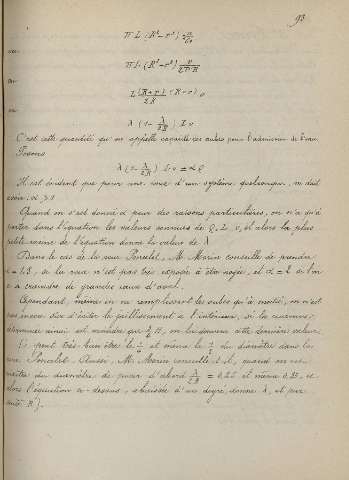 93.
π L (R² - r²)
ou
π L (R² - r²) v / 2πR
ou
L (R + r) / 2R (R - r) v
ou
λ (1 - λ / 2R) L v
C'est cette quantité qu'on appelle capacité des aubes pour l'admission de l'eau.
Posons
λ (1 - λ / 2R) L v = α Q
Il est évident que pour une roue d'un système quelconque, on doit
avoir α > 1
Quand on s'est donné α pour des raisons particulières, on n'a qu'à
porter dans l'équation les valeurs connues de Q, L, v, et alors la plus
petite racine de l'équation donne la valeur de λ.
Dans le cas de la roue Poncelet, M. Morin conseille de prendre
α = 1,5, si la roue n'est pas très exposée à être noyée, et α = 2 si l'on
a à craindre de grandes eaux d'aval.
Cependant, même en ne remplissant les aubes qu'à moitié, on n'est
pas encore sûr d'éviter le jaillissement à l'intérieur, si la couronne
ainsi est moindre que H, on lui donnera cette dernière valeur.
peut très bien être le et même le du diamètre dans les
roues Poncelet. Aussi, M. Morin conseille-t-il, quand on est
maître du diamètre, de poser d'abord λ / 2R = 0,25 et même 0,33, et
alors l'équation ci-dessus, abaissée d'un degré, donne λ, et par
suite R.